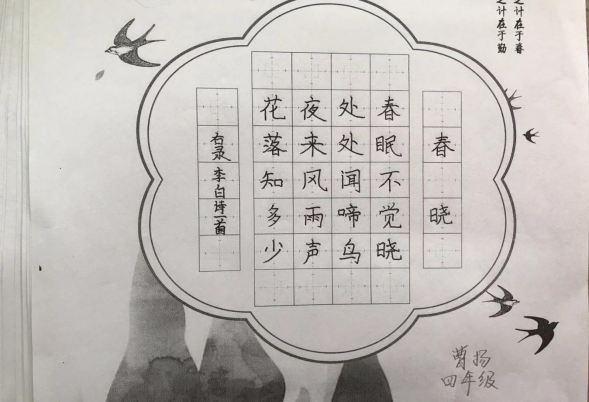 之计在于春
之计在于勤
春晓
春眠不觉晓
处处闻啼鸟
夜来风雨声
花落知多少
右录李白诗一首
曹扬
四年级